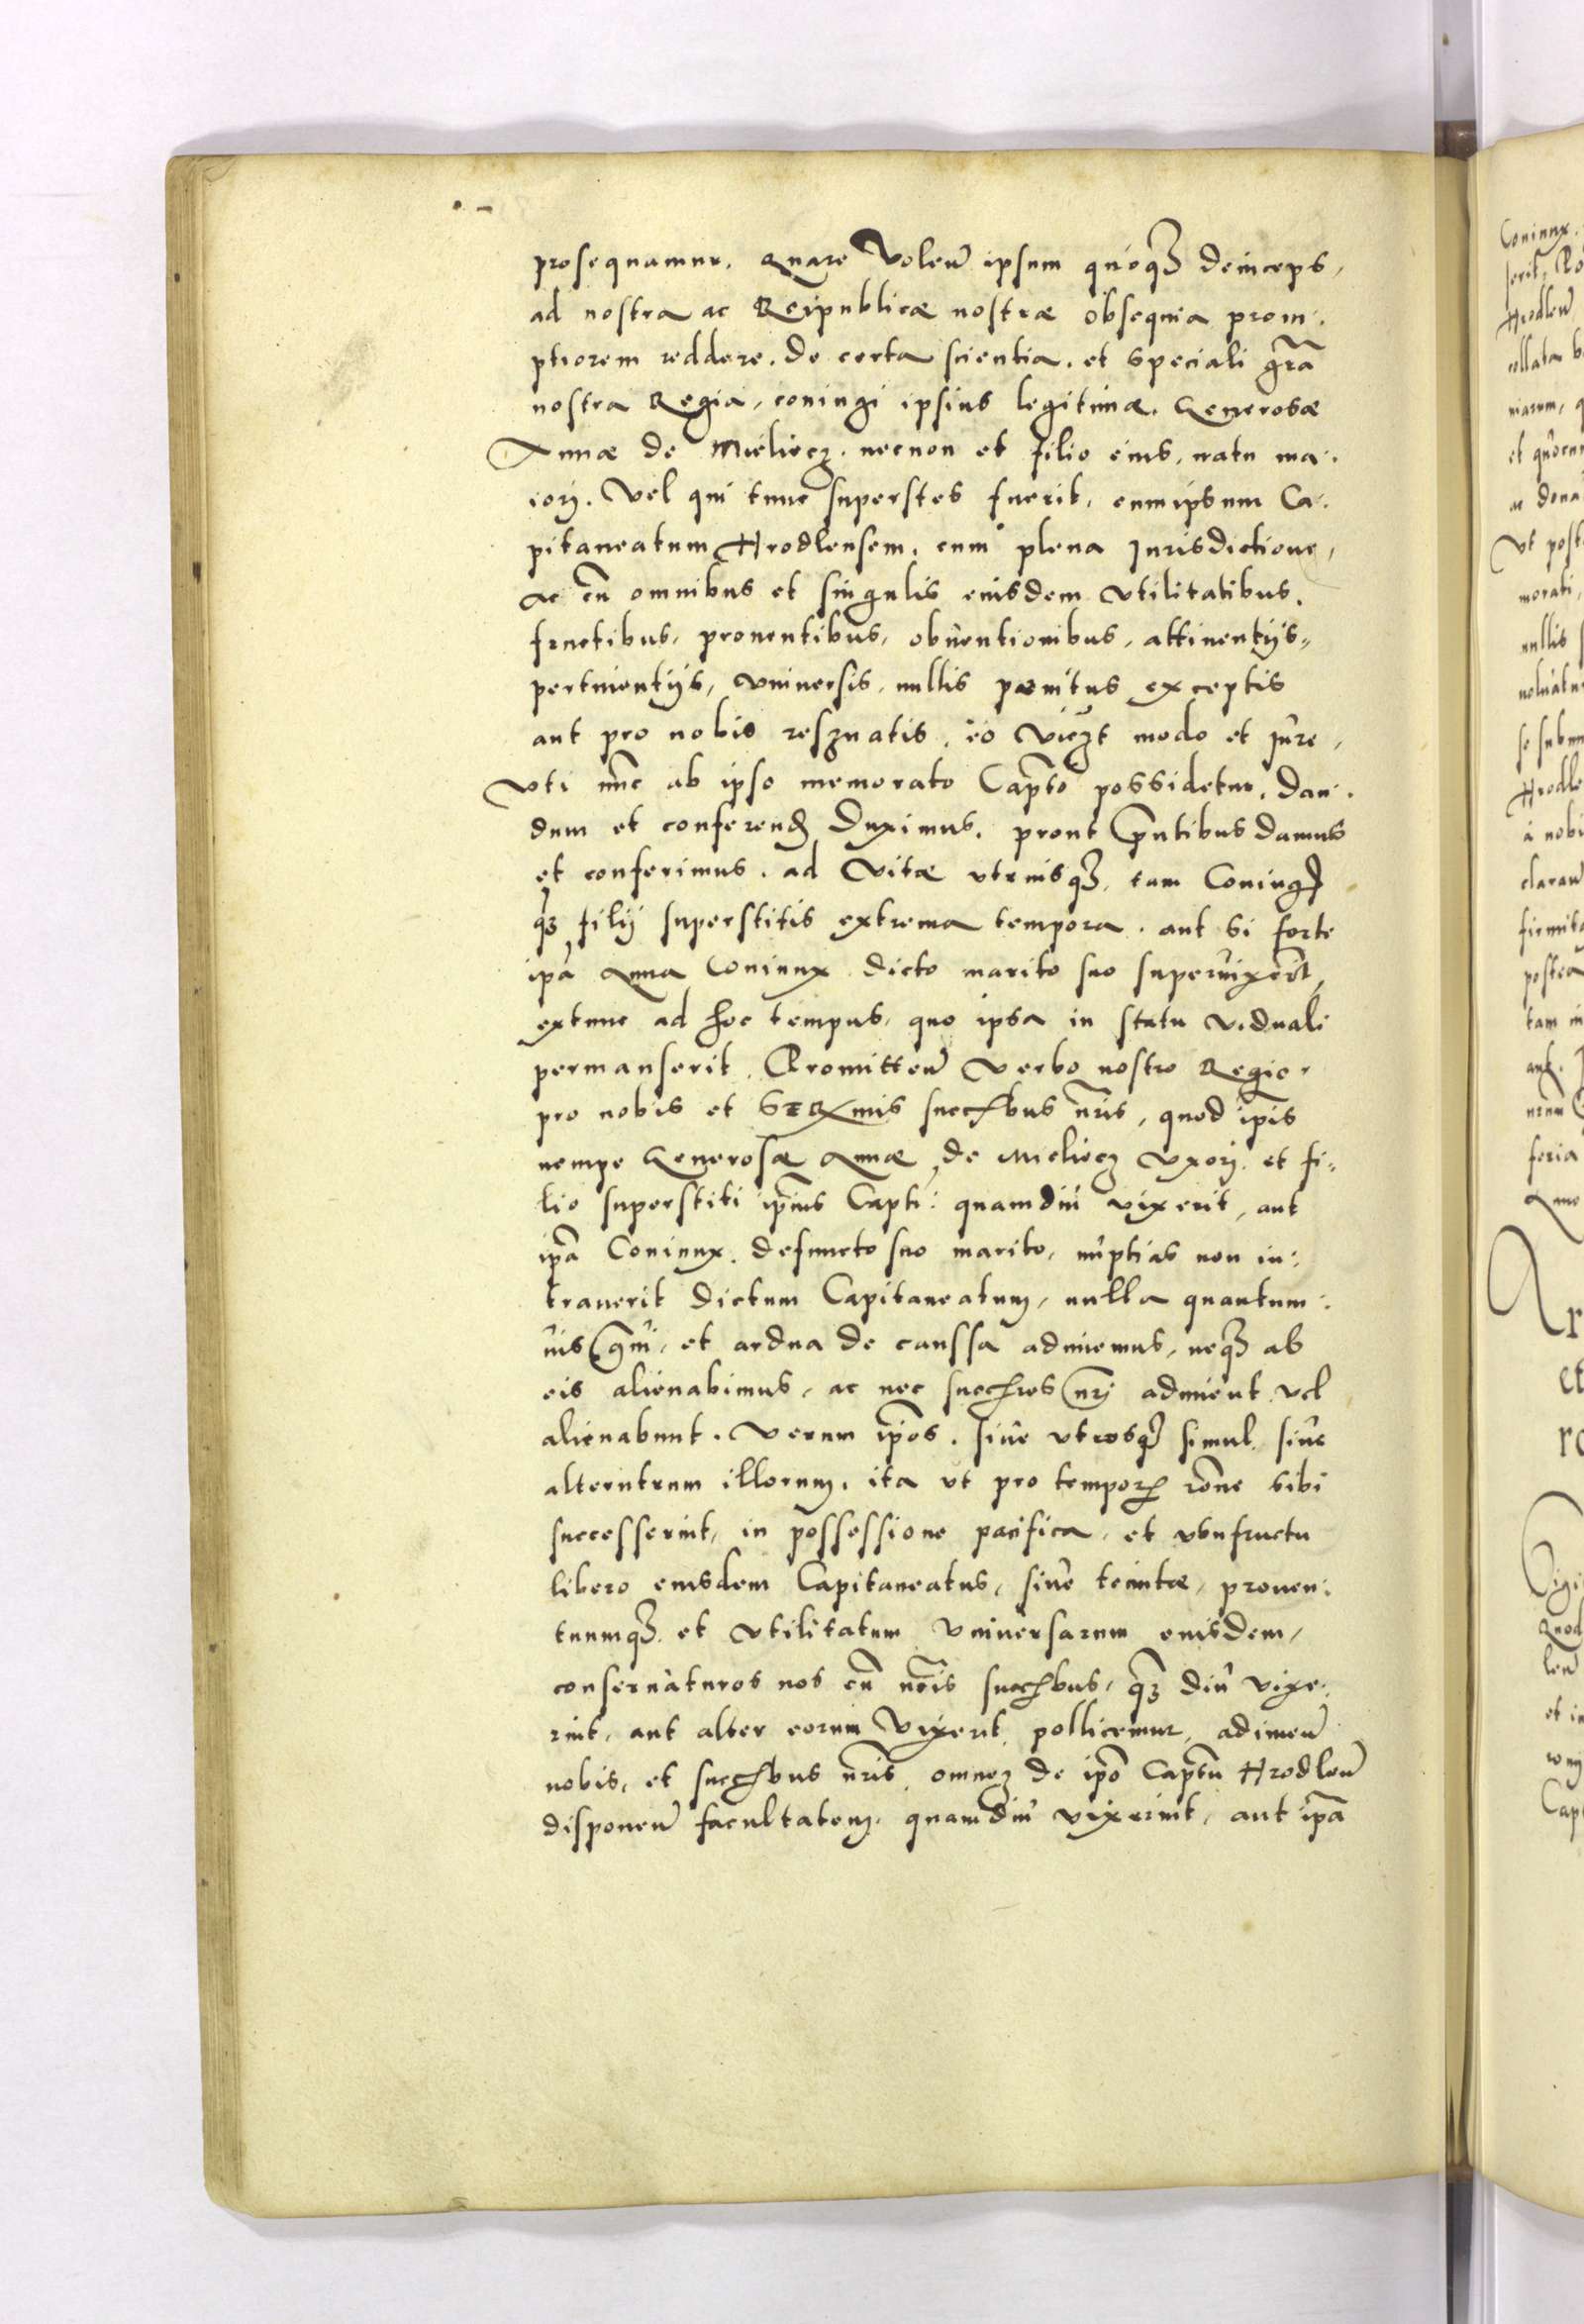 prosequamur. Quare Volen̄ ipsum quoq₃ deinceps,
ad nostra ac Reipublicæ nostræ obsequia prom:
ptiorem reddere. de certa scientia. et speciali gr̄a
nostra Regia, coniugi ipsius legitimæ. Generosæ
Annæ de Mieliecz. necnon et filio eius, natu ma:
iorj. Vel qui tunc superstes fuerit, eumipsum Ca:
pitaneatum Hrodlensem. cum plena Jurisdictione,
ac cū omnibus et singulis eiusdem vtilitatibus.
fructibus, prouentibus, obuentionibus, attinentijs,
pertinentijs, vniuersis, nullis pænitus exceptis
aut pro nobis reseruatis. eo vidz̄t modo et Jure,
vti nūc ab ipso memorato Capt̄o possidetur. Dan:
dum et conferend̄ Duximus. prout p̄ntibus damus
et conferimus. ad Vitæ vtriusq₃, tam Coniugis
q₃ filij superstitis extrema tempora. aut si forte
ip̄a Anna Coniunx dicto marito suo superuixerit,
extunc ad hoc tempus, quo ipsa in statu viduali
permanserit. Promitten̄ Verbo nostro Regio,
pro nobis et Serx̄mis succ̄bus n̄ris, quod ip̄is
nempe Generosæ Annæ de Mieliecz Vxorj. et fi:
lio superstiti ip̄ius Capti: quamdiu vixerit, aut
ip̄a Coniunx. defuncto suo marito, nuptias non in:
trauerit dictum Capitaneatum, nulla quantum:
uis g̅ui, et ardua de caussa adimemus, neq₃ ab
eis alienabimus, ac nec succ̄res n̄rj adiment vel
alienabunt. Verum ip̄os. siue vtrosq₃ simul, siue
alterutrum illorum, ita vt pro tempor̄ r̄one sibi
successerint, in possessione pacifica, et vsufructu
libero eiusdem Capitaneatus, siue tenutæ, prouen:
tuumq₃. et vtilitatum Vniuersarum eiusdem,
conseruaturos nos cū n̄ris succ̄bus, q₃ diu vixe:
rint, aut alter eorum Vixerit pollicemur, adimen̄
nobis, et succ̄bus n̄ris, omnem de ip̄o Capt̄u Hrodlen̄
disponen̄ facultatem, quamdiu vixerint, aut ip̄a